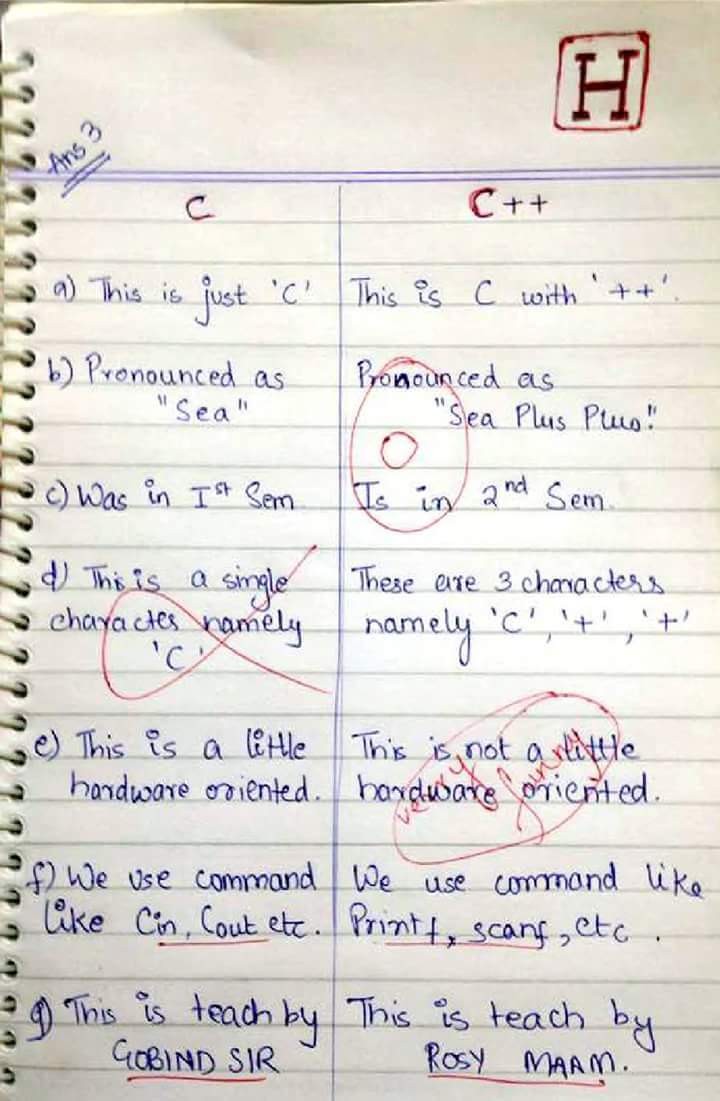 H
Ans 3
C
C++
a) This is just 'C'
This is C with '++'.
b) Pronounced as
"Sea"
Pronounced as
"Sea Plus Plus!"
c) Was in Ist Sem
Is in 2nd Sem.
d) This is a single
character namely
'C'
These are 3 characters
namely 'C', '+', '+'
e) This is a little
hardware oriented.
This is not a little
hardware oriented.
very funny
f) We use command
like Cin, Cout etc.
We use command like
Printf, scanf, etc.
g) This is teach by
GOBIND SIR
This is teach by
ROSY MAAM.
0